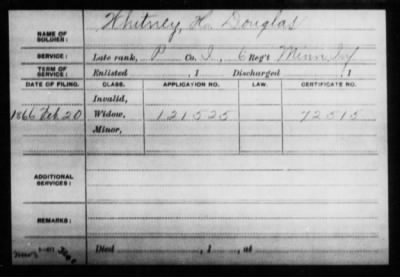 Whitney, H. Douglas
NAME OF SOLDIER:
SERVICE: Late rank, P Co. I, 6 Reg't Minn Inf
TERM OF SERVICE: Enlisted , 1 Discharged , 1
DATE OF FILING. CLASS. APPLICATION NO. LAW. CERTIFICATE NO.
Invalid,
1866 Feb. 20 Widow, 121525 72515
Minor,
ADDITIONAL SERVICES:
REMARKS:
Died , 1 , at